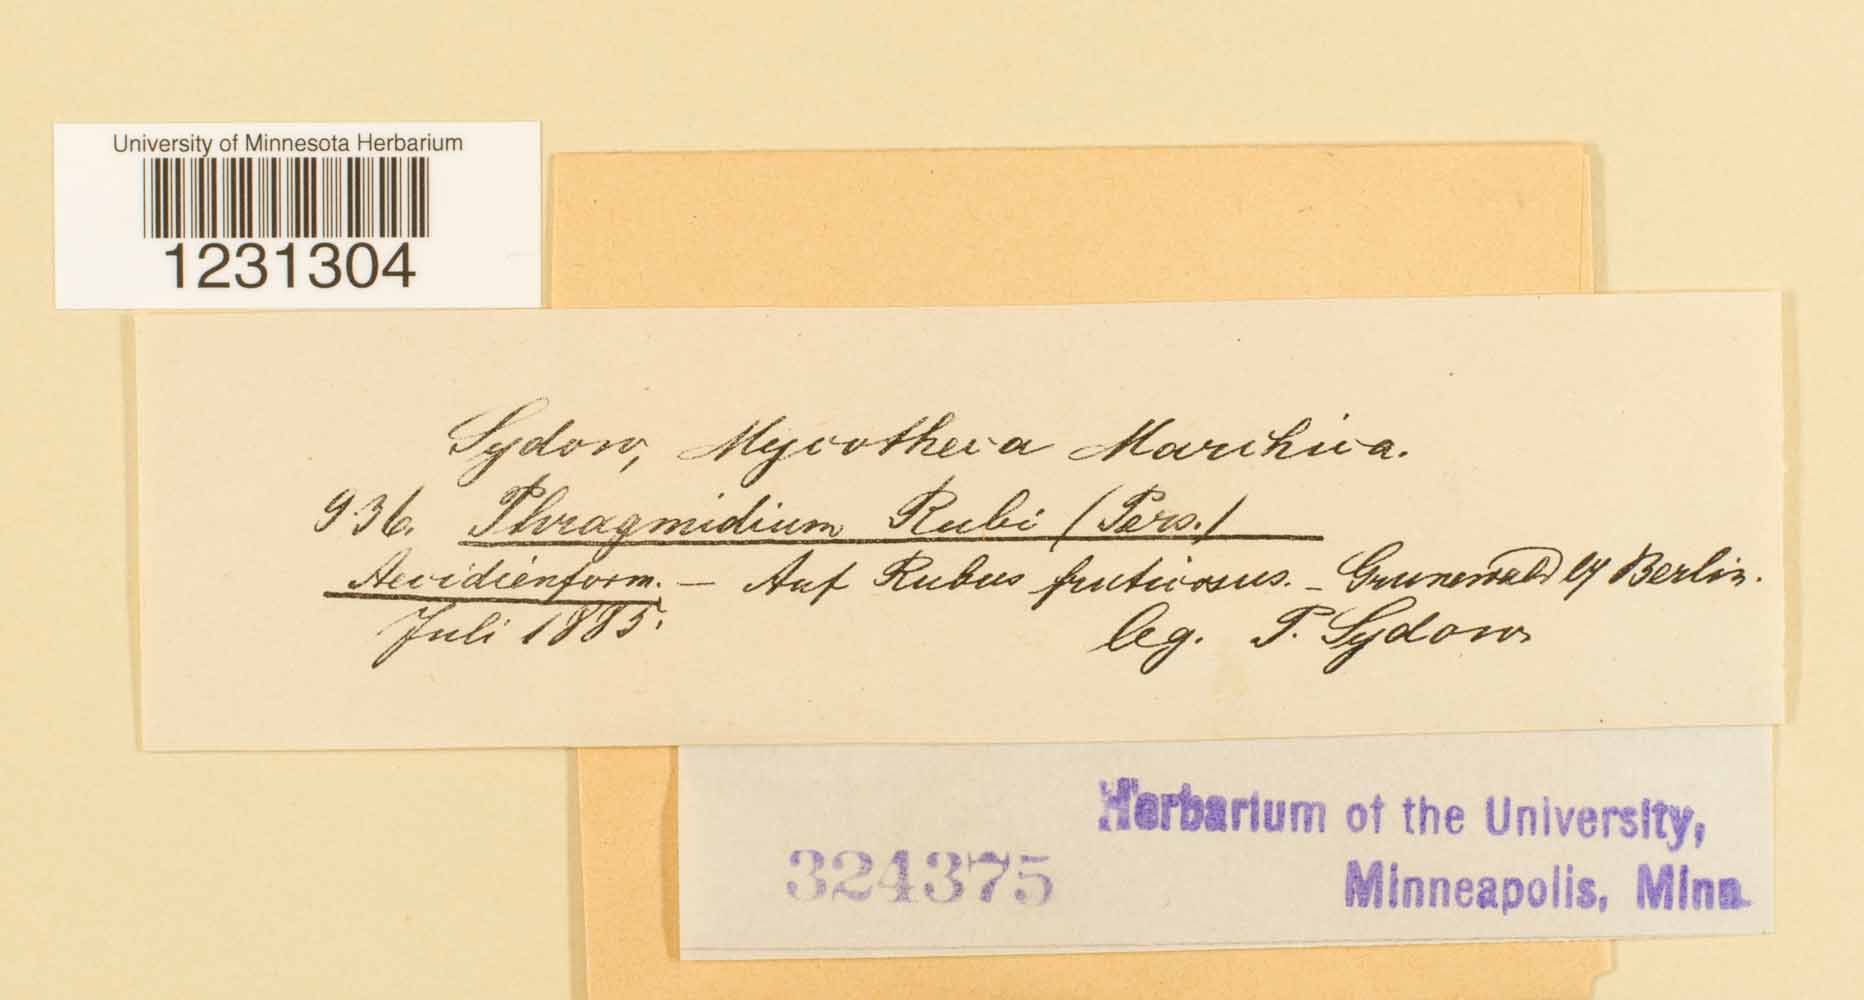 University of Minnesota Herbarium
1231304
Sydow, Mycotheca Marchica.
936. Phragmidium Rubi (Pers.)
Aecidienform. – Auf Rubus fruticosus. – Grunewald b/ Berlin.
Juli 1885.
leg. P. Sydow.
Herbarium of the University,
324375
Minneapolis, Minn.